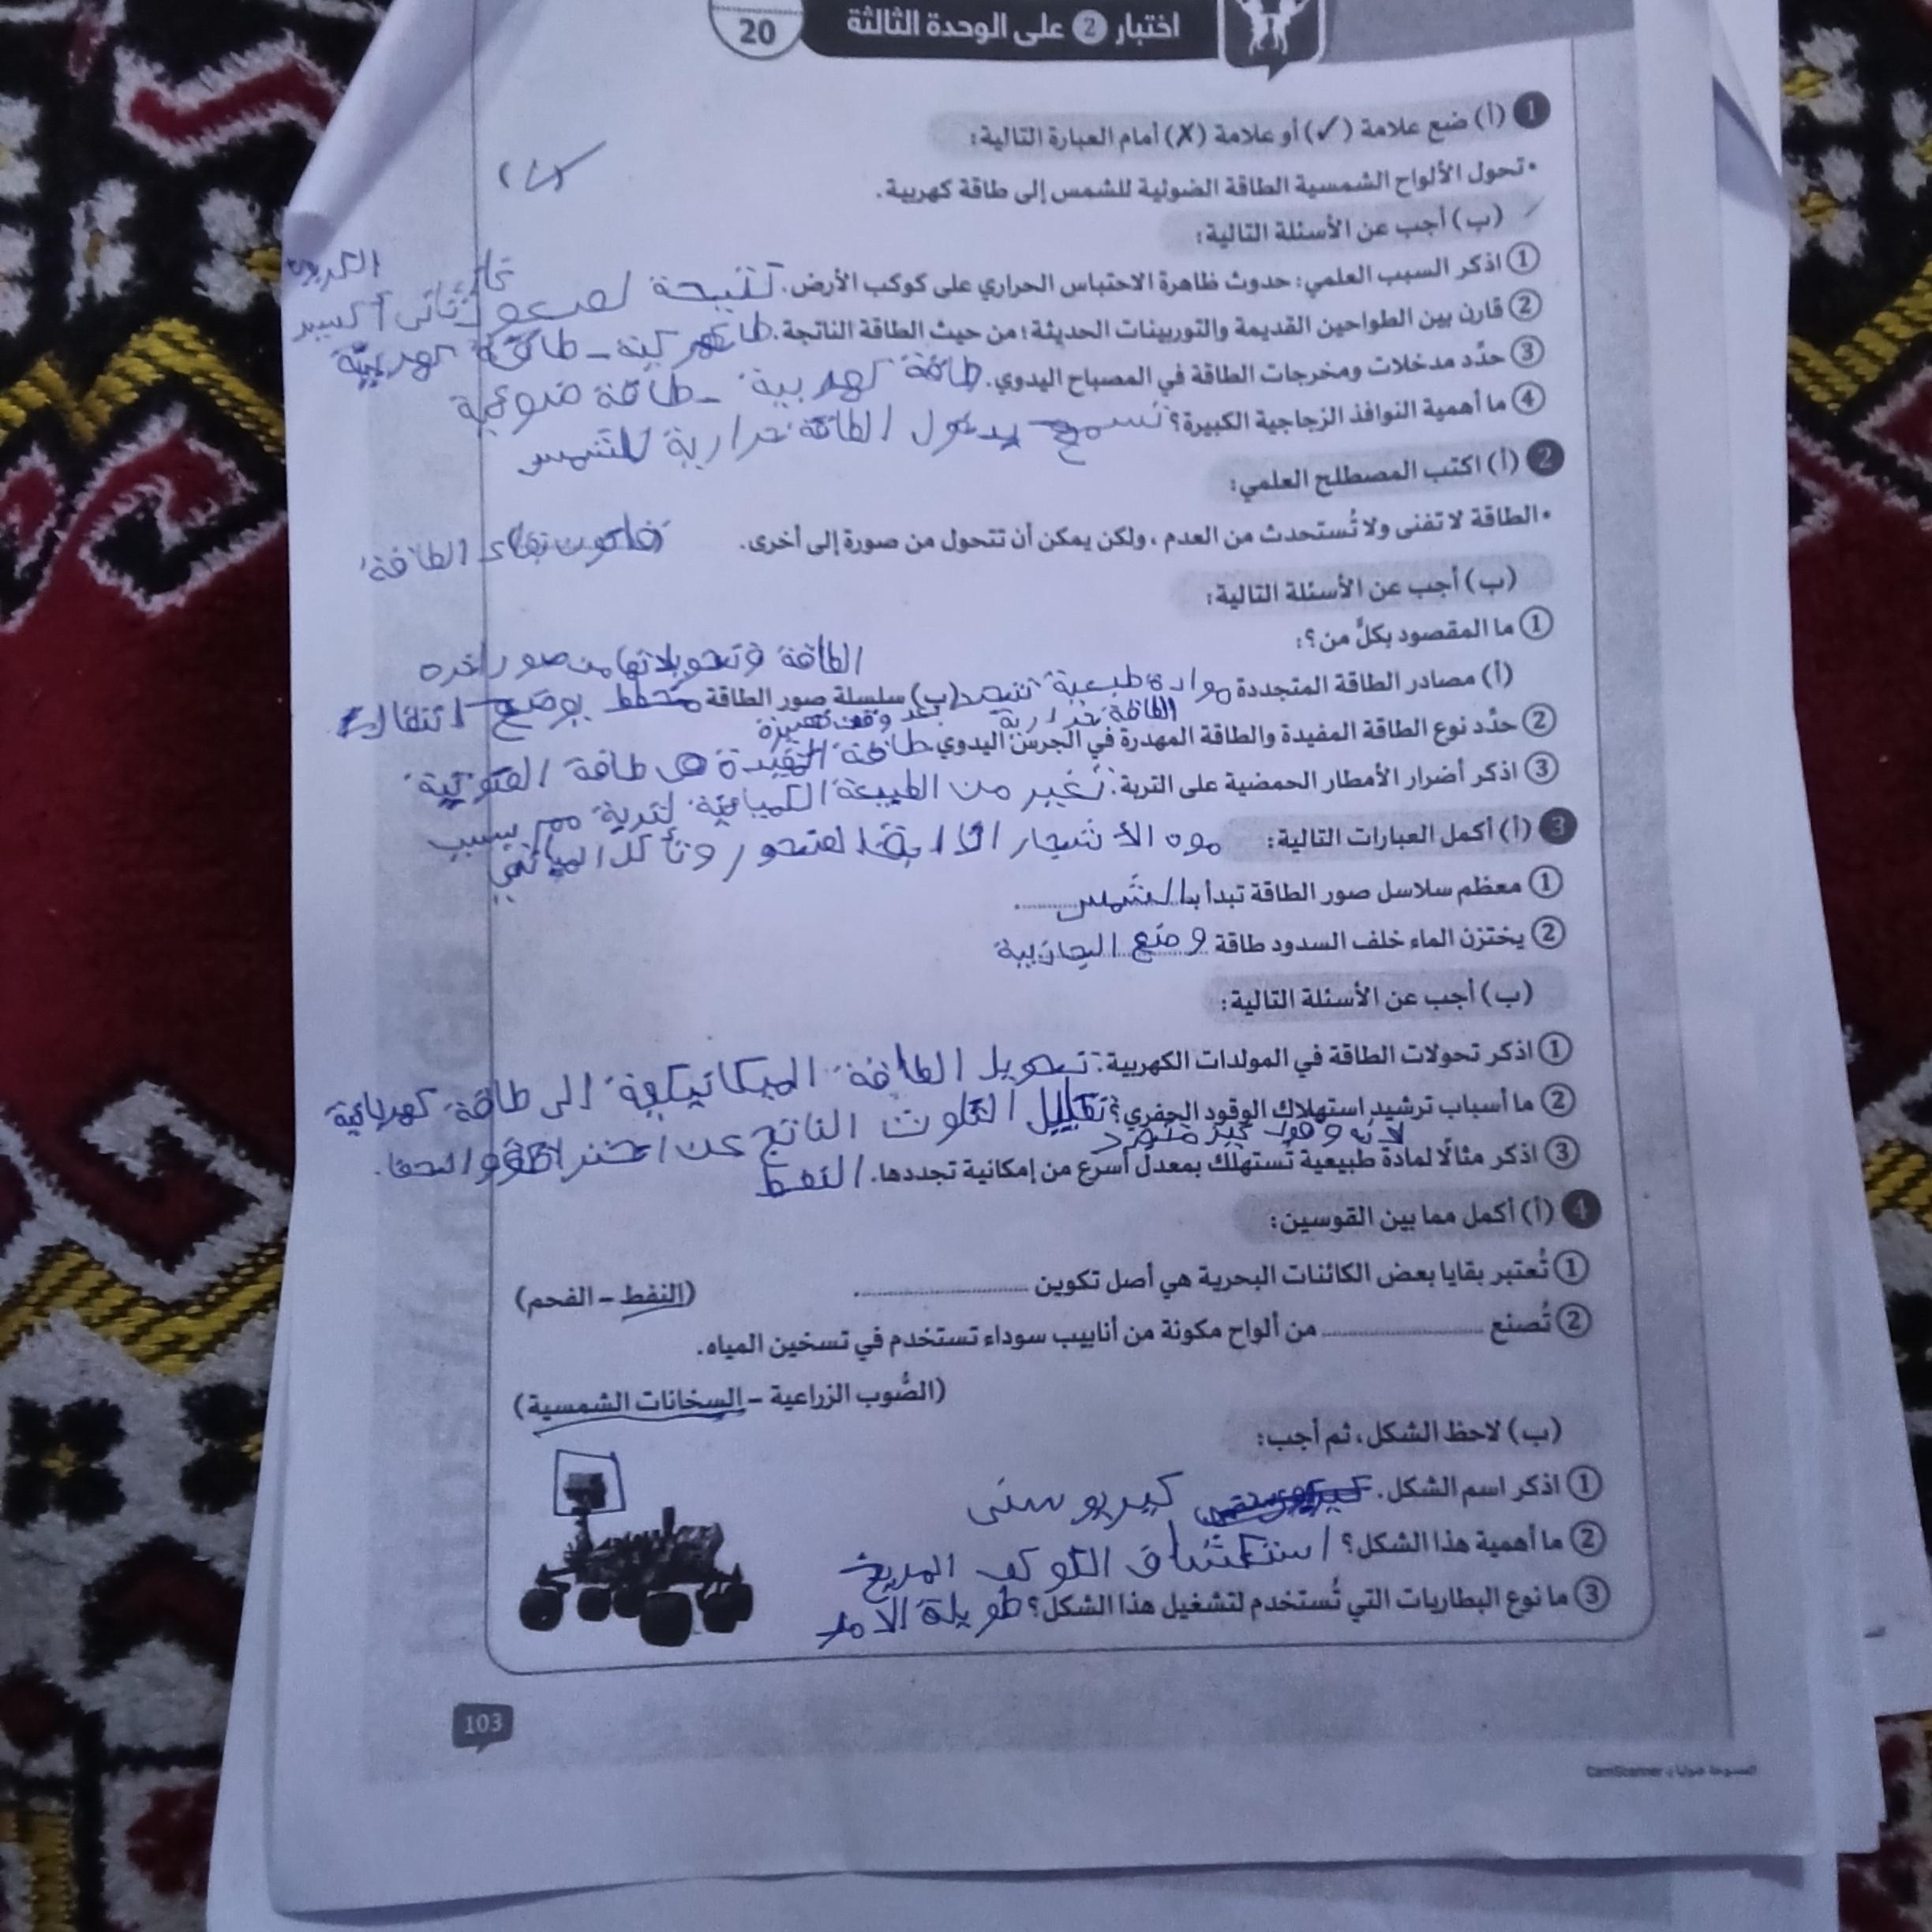 20
اختبار 2 على الوحدة الثالثة
1 (أ) ضع علامة (✓) أو علامة (✗) أمام العبارة التالية:
•تحول الألواح الشمسية الطاقة الضوئية للشمس إلى طاقة كهربية. (✓)
(ب) أجب عن الأسئلة التالية:
① اذكر السبب العلمي: حدوث ظاهرة الاحتباس الحراري على كوكب الأرض. نتيجة لصعود غاز ثانى أكسيد الكربون
② قارن بين الطواحين القديمة والتوربينات الحديثة؛ من حيث الطاقة الناتجة. طاقة حركية - طاقة كهربية
③ حدِّد مدخلات ومخرجات الطاقة في المصباح اليدوي. طاقة كهربية - طاقة ضوئية
④ ما أهمية النوافذ الزجاجية الكبيرة؟ تسمح بدخول الطاقة حرارية للشمس
2 (أ) اكتب المصطلح العلمي:
•الطاقة لا تفنى ولا تُستحدث من العدم، ولكن يمكن أن تتحول من صورة إلى أخرى. قانون بقاء الطاقة
(ب) أجب عن الأسئلة التالية:
① ما المقصود بكلٍّ من؟:
الطاقة وتحويلاتها من صور اخره
(أ) مصادر الطاقة المتجددة موارد طبيعية تتجدد (ب) سلسلة صور الطاقة مخطط يوضح انتقال
بعد وقت قصيرة
الطاقة حرارية
② حدِّد نوع الطاقة المفيدة والطاقة المهدرة في الجرس اليدوي. طاقة المفيدة هى طاقة الصوتية
③ اذكر أضرار الأمطار الحمضية على التربة: تغير من الطبيعة الكميائية لتربة مم يسبب
موت الأشجار وتأكل المبانى
3 (أ) أكمل العبارات التالية:
① معظم سلاسل صور الطاقة تبدأ بـ الشمس
② يختزن الماء خلف السدود طاقة وضع الجاذبية
(ب) أجب عن الأسئلة التالية:
① اذكر تحولات الطاقة في المولدات الكهربية: تحويل الطاقة الميكانيكية الى طاقة كهربائية
② ما أسباب ترشيد استهلاك الوقود الحفري؟ تقليل التلوث الناتج عن
لانه وقود غير متجدد
③ اذكر مثالًا لمادة طبيعية تُستهلك بمعدل أسرع من إمكانية تجددها. النفط
4 (أ) أكمل مما بين القوسين:
① تُعتبر بقايا بعض الكائنات البحرية هي أصل تكوين .................... . (النفط – الفحم)
② تُصنع .................... من ألواح مكونة من أنابيب سوداء تستخدم في تسخين المياه.
(الصُّوب الزراعية – السخانات الشمسية)
(ب) لاحظ الشكل، ثم أجب:
① اذكر اسم الشكل. كيريوستى
② ما أهمية هذا الشكل؟ استكشاف الكوكب المريخ
③ ما نوع البطاريات التي تُستخدم لتشغيل هذا الشكل؟ طويلة الامد
103
الممسوحة ضوئيا بـ CamScanner